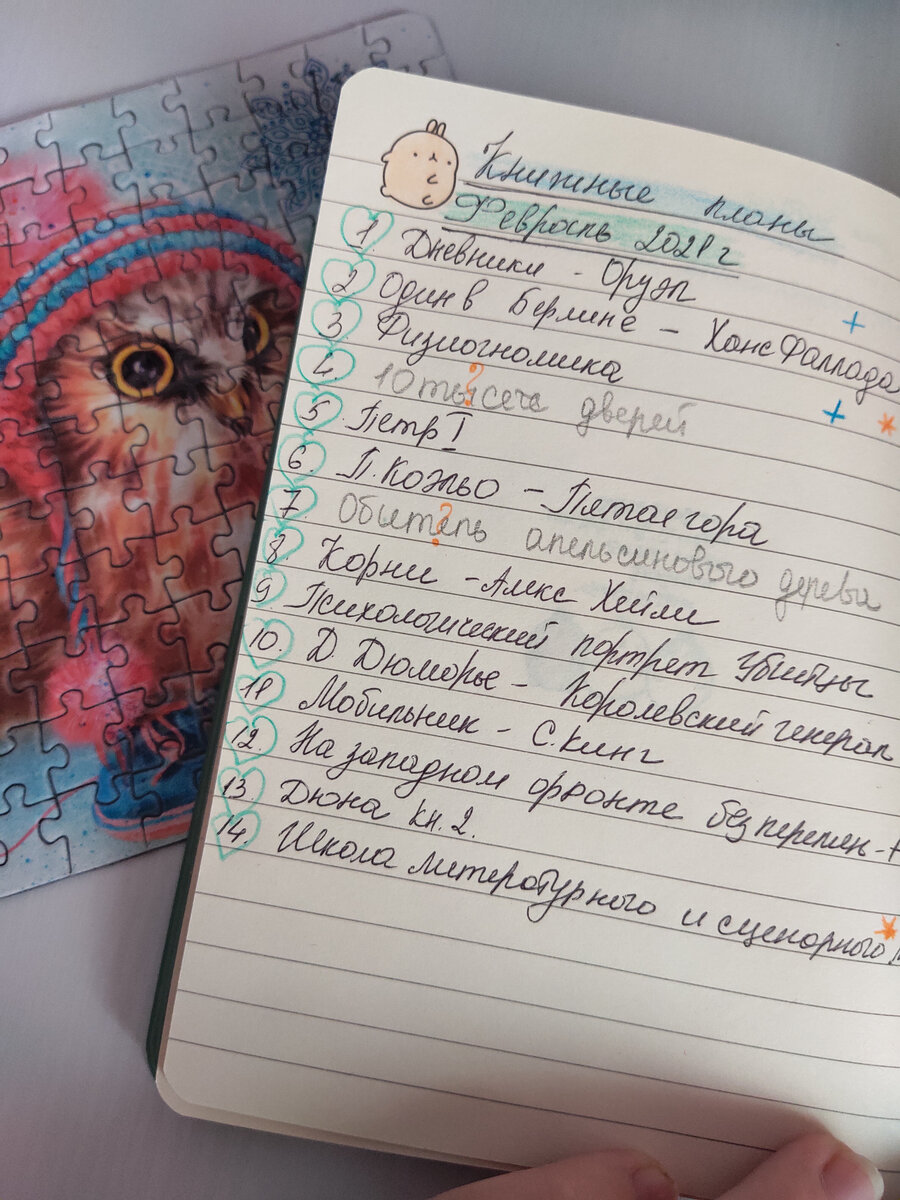 Книжные планы
Февраль 2021 г
1 Дневники - Оруэл
2 Один в Берлине - Ханс Фаллада
+
3 Физиогномика
4 10 тысеч дверей
?
+ *
5 Петр I
6. П. Коэльо - Пятая гора
7 Обитель апельсинового дерева
?
8 Корни - Алекс Хейли
9. Психологический портрет убийцы
10. Д. Дюморье - Королевский генерал
11 Мобильник - С. Кинг
12. На западном фронте без перемен -
13 Дюна кн. 2.
14. Школа литературного и сценарного
*